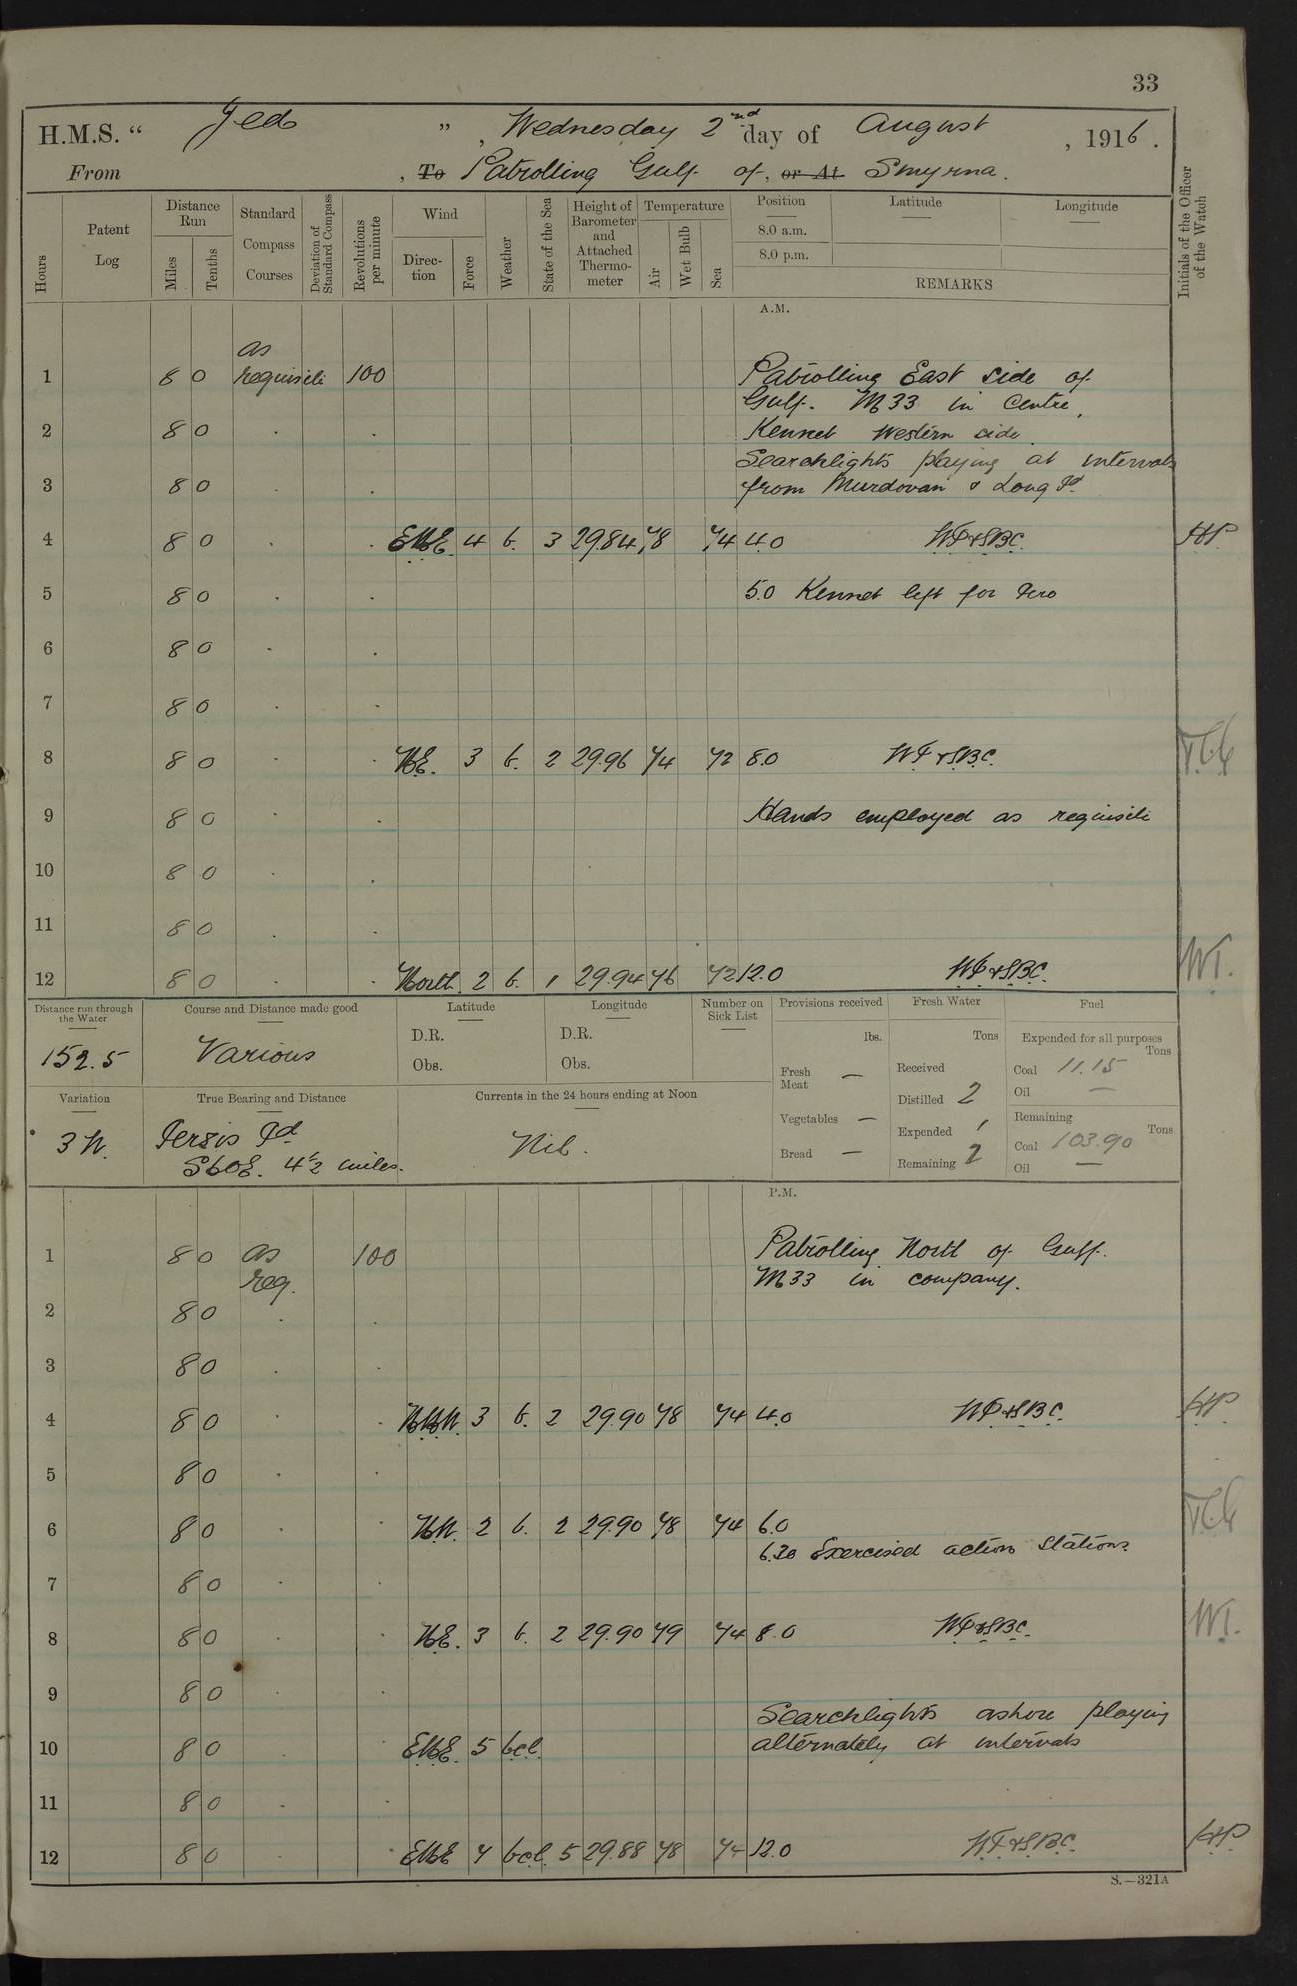 33
H.M.S. “ Jed ” , Wednesday 2nd day of August , 1916 .
From , To Patrolling Gulf of , or At Smyrna.
Hours Patent Log Distance Run Miles Tenths Standard Compass Courses Deviation of Standard Compass Revolutions per minute Wind Direction Force Weather State of the Sea Height of Barometer and Attached Thermometer Temperature Air Wet Bulb Sea Position 8.0 a.m. 8.0 p.m. Latitude Longitude REMARKS Initials of the Officer of the Watch
A.M.
as
1 8 0 requisite 100 Patrolling East side of
Gulf. M33 in Centre,
2 8 0 . . Kennet Western side.
Searchlights playing at intervals
3 8 0 . . from Murdovan & Long Id.
4 8 0 . . ENE. 4 b. 3 29.84 78 74 4.0 WT&SBC. HP.
5 8 0 . . 5.0 Kennet left for Iero
6 8 0 . .
7 8 0 . .
8 8 0 . . NE. 3 b. 2 29.96 74 72 8.0 WT&SBC.
9 8 0 . . Hands employed as requisite
10 8 0 . .
11 8 0 . .
12 8 0 . . North. 2 b. 1 29.94 76 72 12.0 WT&SBC. WT.
Distance run through the Water Course and Distance made good Latitude Longitude Number on Sick List Provisions received Fresh Water Fuel
152.5 Various D.R. Obs. D.R. Obs. lbs. Tons Expended for all purposes Tons
Fresh Meat — Received Coal 11.15
Distilled 2 Oil —
Variation True Bearing and Distance Currents in the 24 hours ending at Noon Vegetables — Expended 1 Remaining Tons
3 W. Id Nil. Coal 103.90
S60E. 4½ miles. Bread — Remaining 2 Oil —
P.M.
1 8 0 as 100 Patrolling North of Gulf.
req. M33 in company.
2 8 0 . .
3 8 0 . .
4 8 0 . . NNW. 3 b. 2 29.90 78 74 4.0 WT&SBC. HP
5 8 0 . .
6 8 0 . . NW. 2 b. 2 29.90 78 74 6.0
6.30 Exercised action Stations.
7 8 0 . .
8 8 0 . . NE. 3 b. 2 29.90 79 74 8.0 WT&SBC. WT.
9 8 0 . .
Searchlights ashore playing
10 8 0 . . ENE. 5 bcl. alternately at intervals
11 8 0 . .
12 8 0 . . ENE 7 bcl. 5 29.88 78 74 12.0 WT&SBC. HP
S.—321A